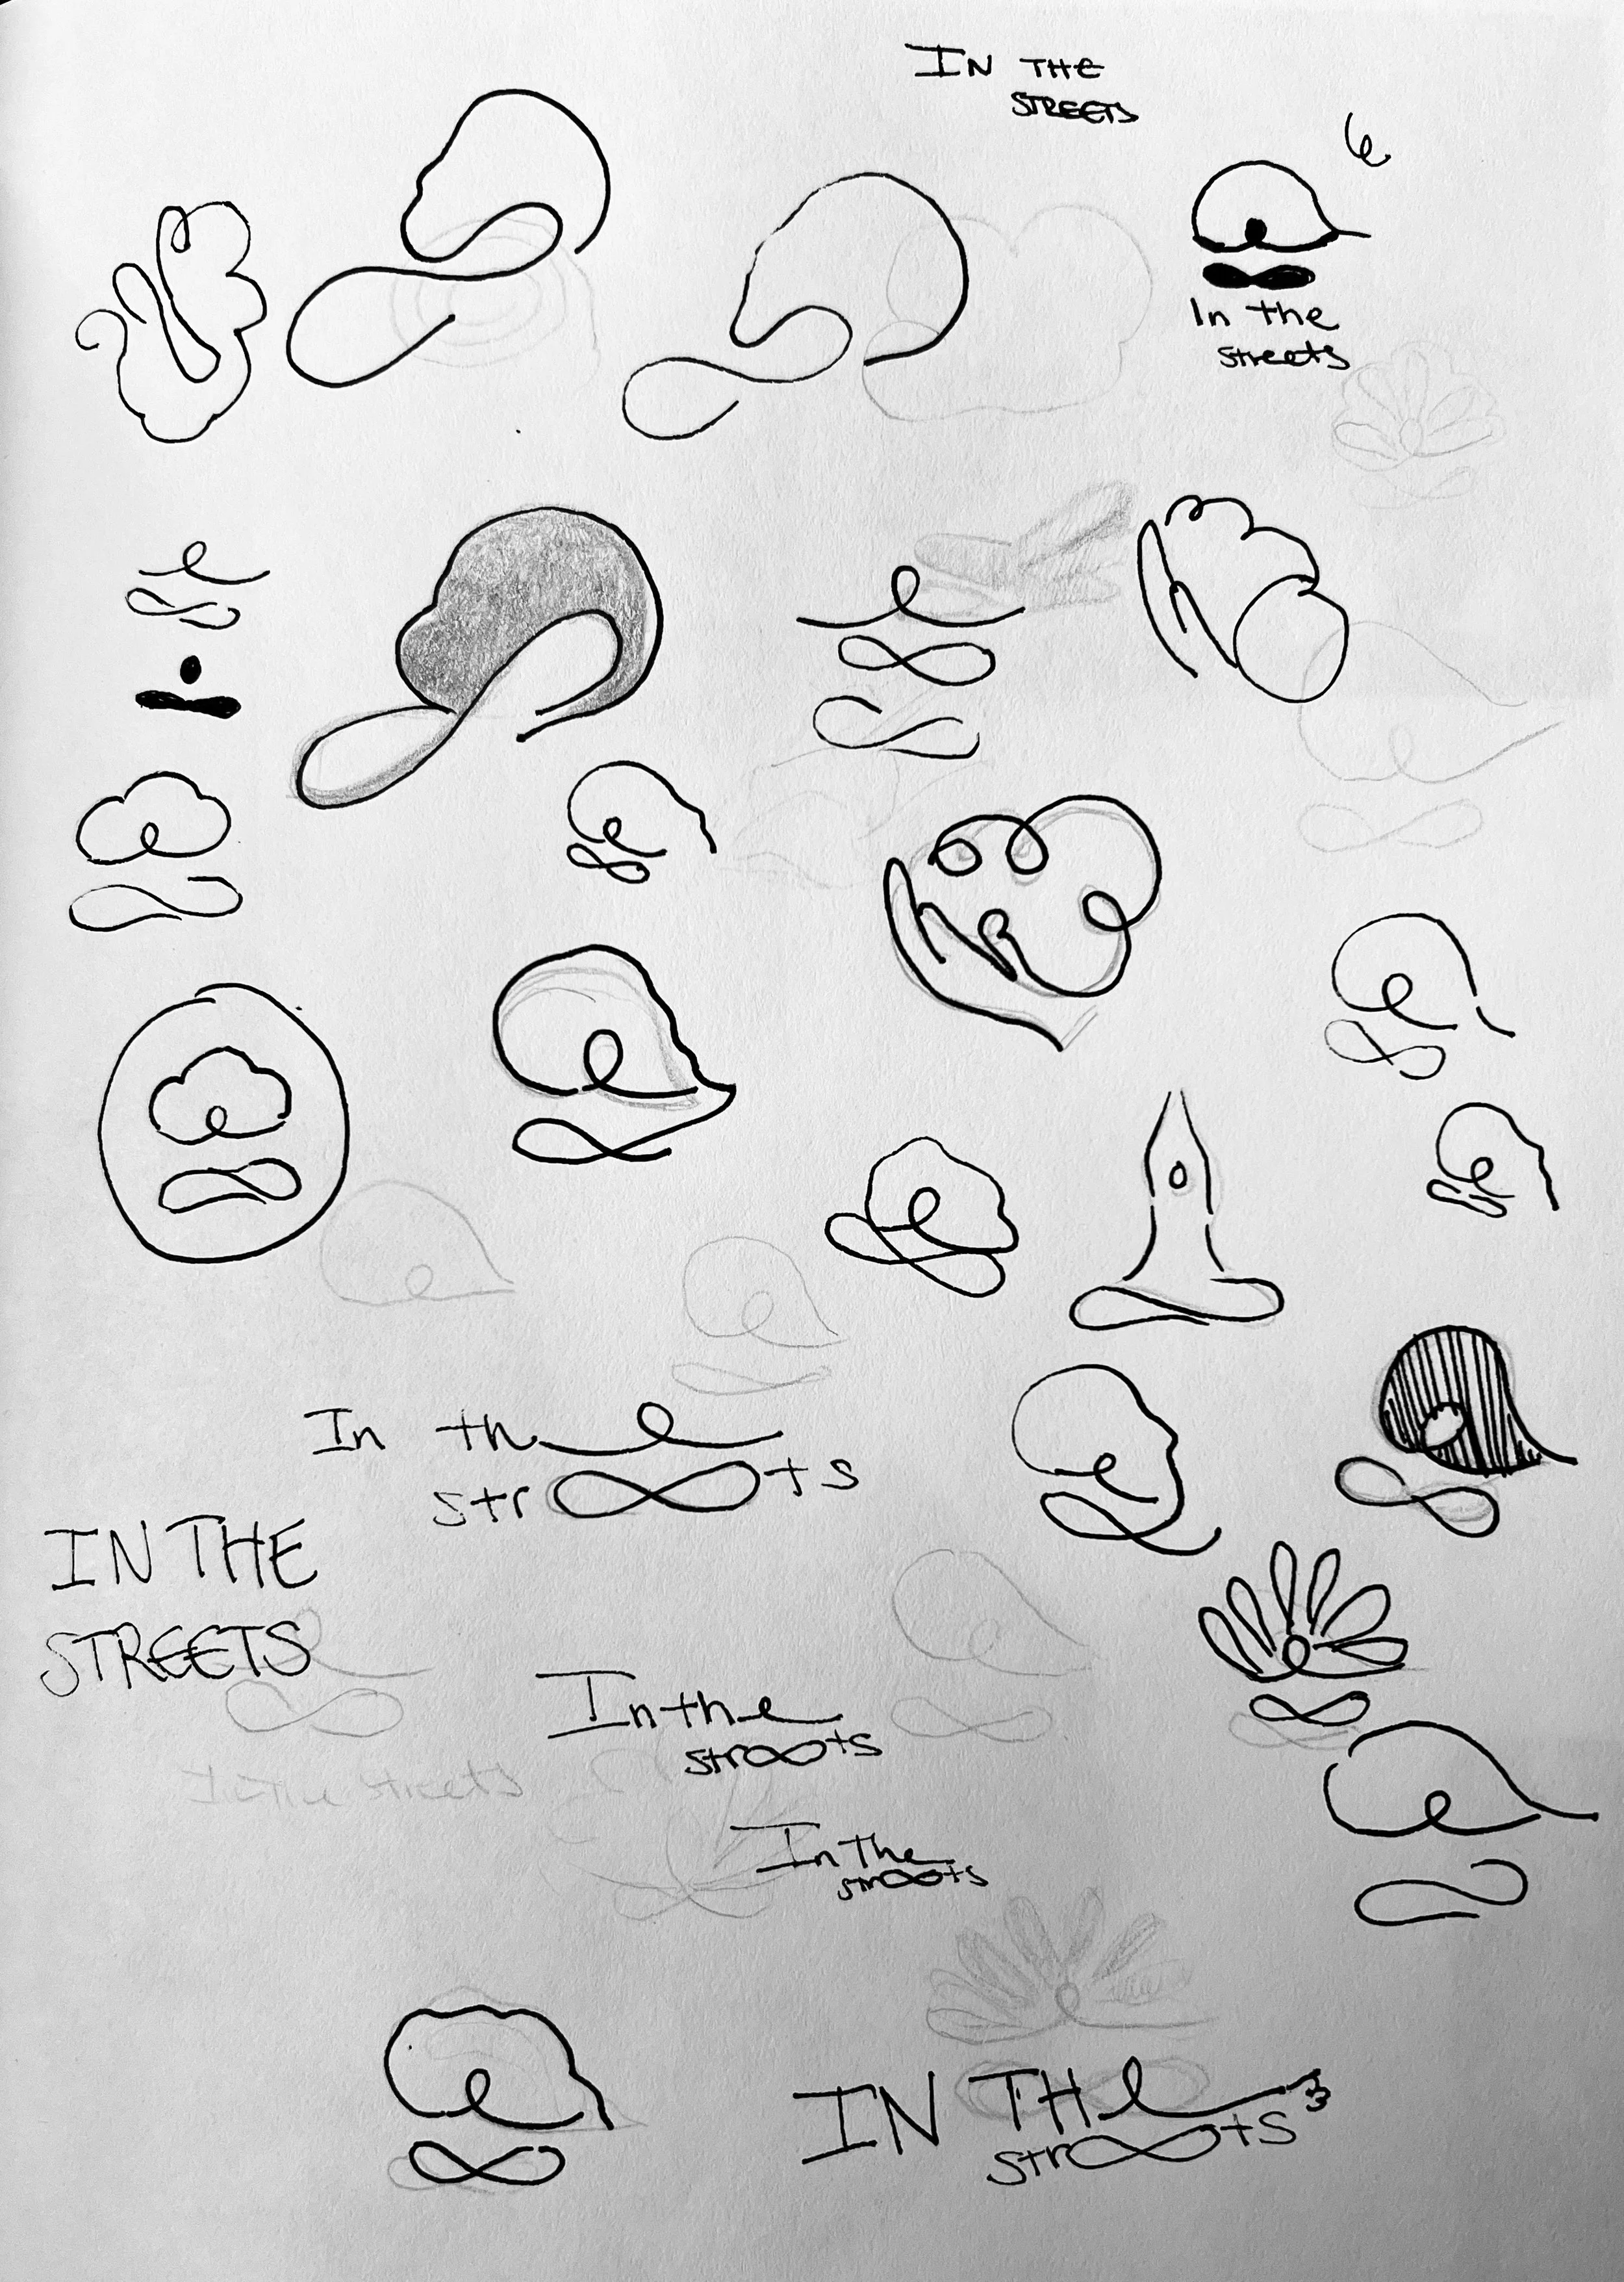 IN THE
STREETS
In the
streets
In the
str∞ts
IN THE
STREETS
In the
str∞ts
In The Streets
In The
str∞ts
IN THe
str∞ts